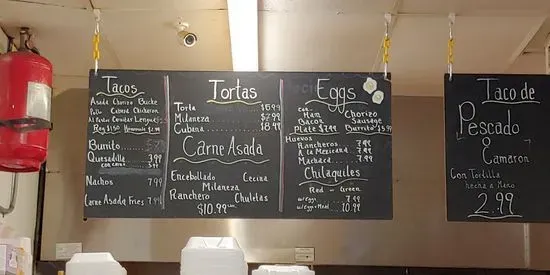 Tacos
Asada Chorizo Buche
Pollo Cabeza Chicharon
Al Pastor Lengua
Reg $1.50 $2.99
Burrito
Quesadilla 3.99
Nachos 7.99
Carne Asada Fries 7.99
Tortas
Torta $6.99
Milaneza $7.99
Cubana $8.99
Carne Asada
Encebollado Cecina
Milaneza
Ranchero Chuletas
$10.99
Eggs
con
Ham Chorizo
Bacon Sausage
Plate $7.99 Burrito $5.99
Huevos
Rancheros 7.99
A la Mexicana 7.99
Machaca 7.99
Chilaquiles
Red - Green
w/Eggs 7.99
w/Eggs + Meat 10.99
Taco de
Pescado
o
Camaron
Con Tortilla
hecha a Mano
2.99